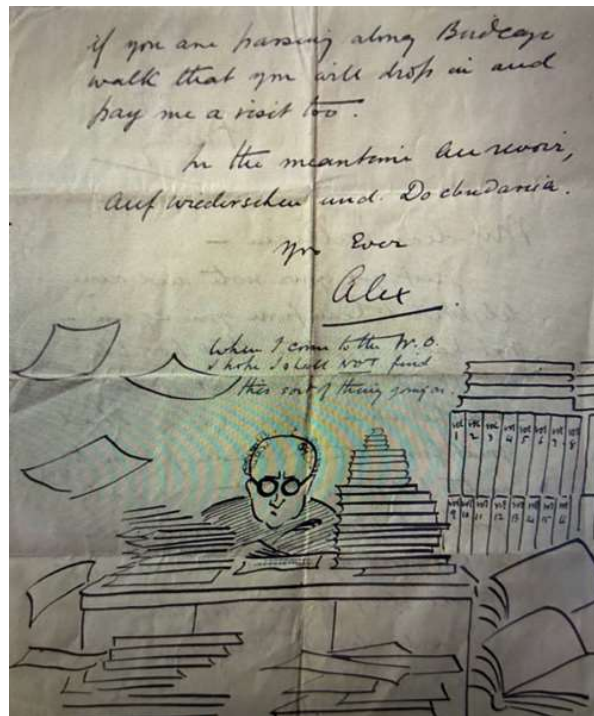 if you are passing along Birdcage
walk that you will drop in and
pay me a visit too.
In the meantime Au revoir,
Auf wiedersehen und. Do
Yrs Ever
Alex
When I come to the W.O.
I hope I shall NOT find
this sort of thing going on.
vol 1 vol 2 vol 3 vol 4 vol 5 vol 6 vol 7 vol 8
9 10 11 12 13 14 15 16